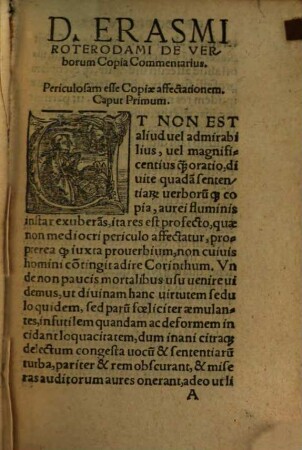 D. ERASMI
ROTERODAMI DE VER-
borum Copia Commentarius.
Periculosam esse Copiæ affectationem.
Caput Primum.
VT NON EST
aliud uel admirabi
lius, uel magnifi
centius ꝙ̃ oratio, di
uite quadã senten
tiarũ uerborũꝙ co
pia, aurei fluminis
instar exuberãs, ita res est profecto, quæ
non mediocri periculo affectatur, pro-
pterea ꝙ iuxta prouerbium, non cuiuis
homini cõtingit adire Corinthum. Vn
de non paucis mortalibus usu uenire ui
demus, ut diuinam hanc uirtutem sedu
lo quidem, sed parũ fœliciter æmulan-
tes, in futilem quandam ac deformem in
cidant loquacitatem, dum inani citraꝙ
delectum congesta uocũ & sententiarũ
turba, pariter & rem obscurant, & mise
ras auditorum aures onerant, adeo ut li
A